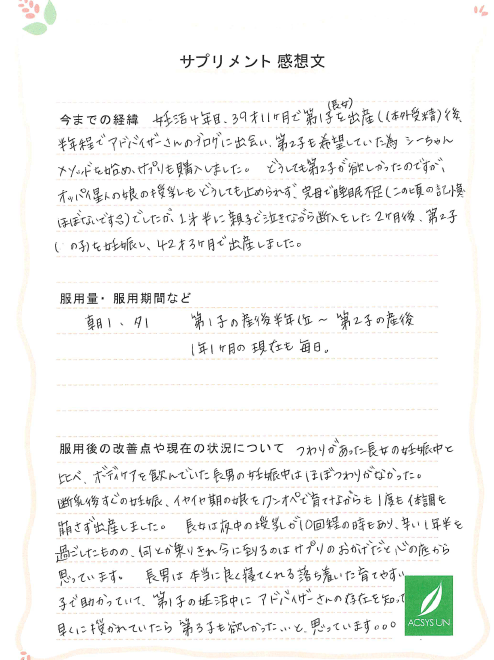 サプリメント 感想文
今までの経緯 妊活4年目、39才11ヶ月で第1子(長女)を出産(体外受精)後、
半年程でアドバイザーさんのブログに出会い、第2子も希望していた為 シーちゃん
メソッドを始め、サプリも購入しました。 どうしても第2子が欲しかったのですが、
オッパイ星人の娘の授乳もどうしても止められず、完母で睡眠不足(この頃の記憶
ほぼないです)でしたが、1才半に親子で泣きながら断入をした2ヶ月後、第2子
( の子)を妊娠し、42才3ヶ月で出産しました。
服用量・服用期間など
朝1、夕1 第1子の産後半年位~ 第2子の産後
1年1ヶ月の現在も毎日。
服用後の改善点や現在の状況について つわりがあった長女の妊娠中と
比べ、ボディケアを飲んでいた長男の妊娠中はほぼつわりがなかった。
断乳後すぐの妊娠、イヤイヤ期の娘をワンオペで育てながらも1度も体調を
崩さず出産しました。 長女は夜中の授乳が10回程の時もあり、辛い1年半を
過ごしたものの、何とか乗りきれ今に到るのはサプリのおかげだと心の底から
思っています。 長男は本当に良く寝てくれる落ち着いた育てやすい
子で助かっていて、第1子の妊活中にアドバイザーさんの存在を知って
早くに授かれていたら第3子も欲しかった…と思っています。。。
ACSYS UN